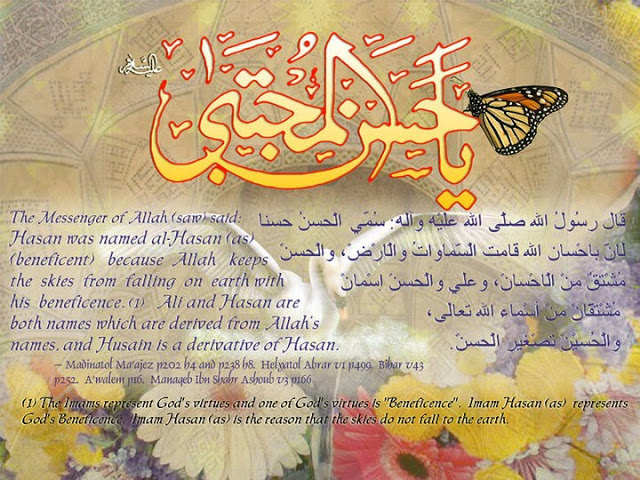 يا حسن المجتبى
عليه السلام
The Messenger of Allah (saw) said:
Hasan was named al-Hasan (as)
(beneficent) because Allah keeps
the skies from falling on earth with
his beneficence.(1) Ali and Hasan are
both names which are derived from Allah's
names, and Husain is a derivative of Hasan.
قال رسُولُ الله صلّى الله عليْه واله: سُمّي الحسنُ حسنا
لانّ باحْسان الله قامت السّماواتُ والارْضُ، والحسنُ
مُشْتقٌ من الاحْسان، وعلي والحسنُ اسْمان
مشْتقّان منْ أسْماء الله تعالى،
والحُسيْنُ تصْغير الحسن.
– Madinatol Ma'ajez p202 h4 and p238 h8. Helyatol Abrar v1 p499. Bihar v43
p252. A'walem p16. Manaqeb Ibn Shahr Ashoub v3 p166
(1) The Imams represent God's virtues and one of God's virtues is "Beneficence". Imam Hasan (as) represents
God's Beneficence. Imam Hasan (as) is the reason that the skies do not fall to the earth.